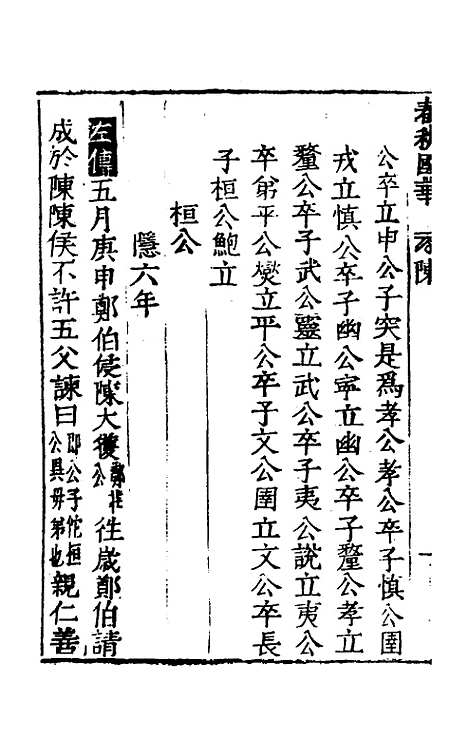 春秋國華
陳
公卒立申公子突是爲孝公孝公卒子慎公圉
戎立慎公卒子幽公寧立幽公卒子釐公孝立
釐公卒子武公靈立武公卒子夷公說立夷公
卒弟平公燮立平公卒子文公圉立文公卒長
子桓公鮑立
桓公
隱六年
左傳五月庚申鄭伯侵陳大獲公往歲鄭伯請
成於陳陳侯不許五父諫曰即公子佗桓公異毋弟也親仁善